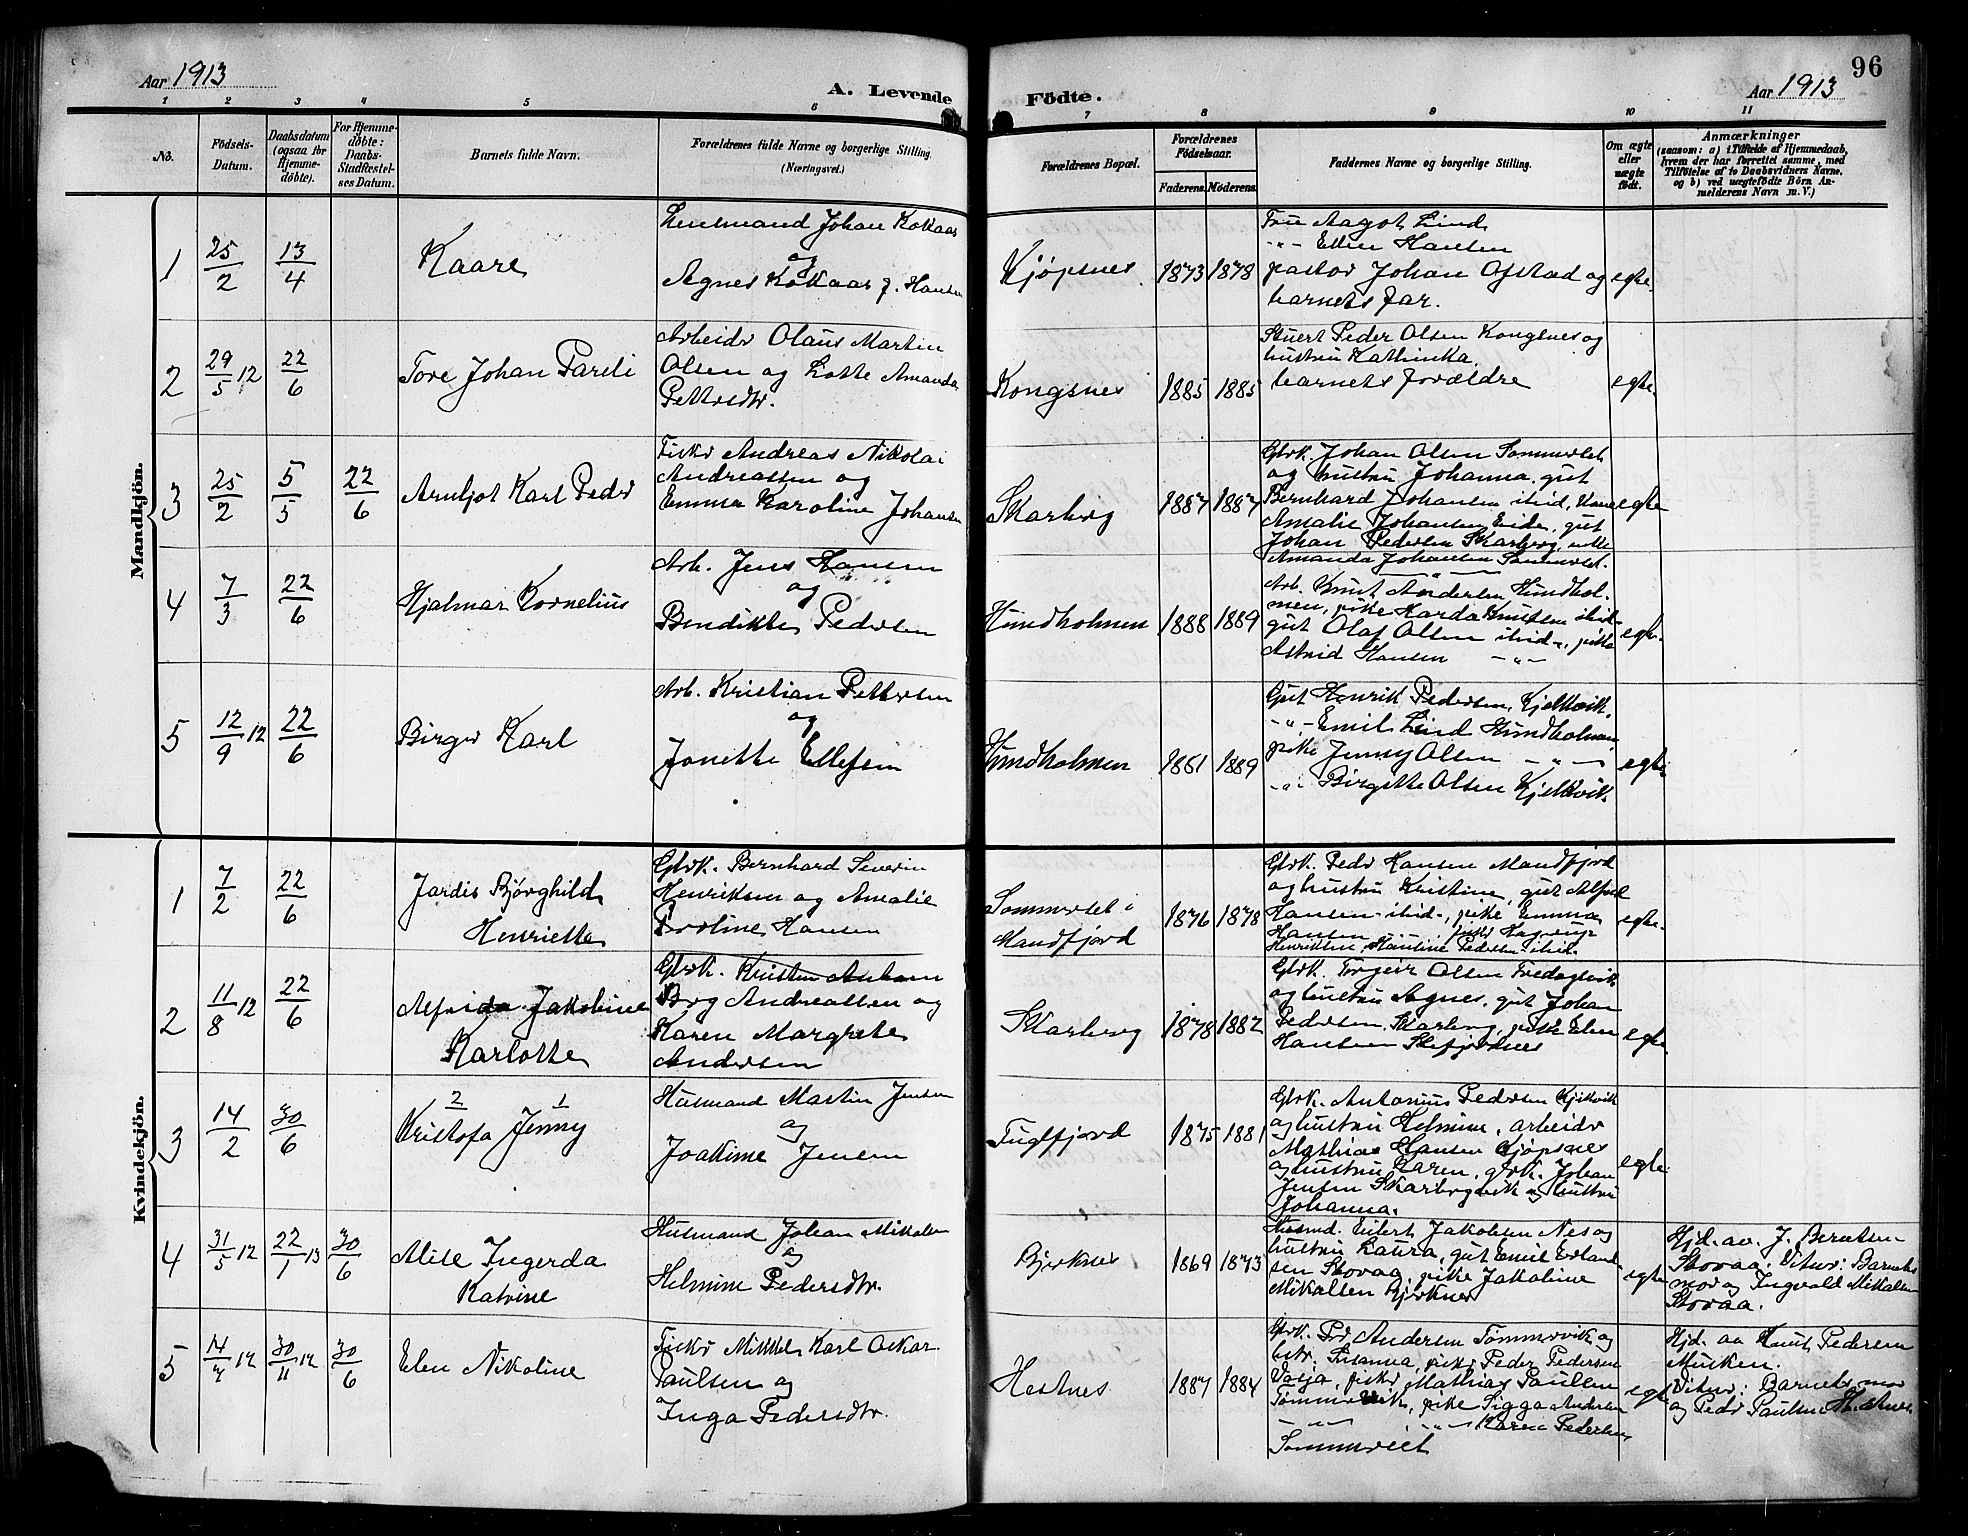 96
Aar 1913
A. Levende Fødte.
Aar 1913
1 2 3 4 5 6 7 8 9 10 11
No.
Fødsels-
Datum.
Daabsdatum
(ogsaa for
Hjemme-
døbte).
For Hjemme-
døbte:
Daabs-
Stadfæstel-
ses Datum.
Barnets fulde Navn.
Forældrenes fulde Navne og borgerlige Stilling.
(Næringsvei.)
Forældrenes Bopæl.
Forældrenes
Fødselsaar.
Faderens. Moderens.
Faddernes Navne og borgerlige Stilling.
Om ægte
eller
uægte
født.
Anmærkninger
(saasom: a) i Tilfælde af Hjemmedaab,
hvem der har forrettet samme, med
Tilføielse af to Daabsvidners Navne,
og b) ved uægtefødte Børn An-
melderens Navn m. V.)
Mandkjön.
1 25/2 13/4 Kaare
Johan Kokaas
og
Agnes Kokaas f. Hansen
Kjøpsnes 1873 1878
Fru Aagot Lind
-"- Ellen Hansen
pastor Johan Ofstad og
barnets far.
egte.
2 29/5 12 22/6 Tore Johan Pareli
Arbeider Olaus Martin
Olsen og Lotte Amanda
Pettersdtr.
Kongsnes 1885 1885
Stuert Peder Olsen Kongsnes og
hustru Kathinka.
barnets forældre
egte.
3 25/2 5/5 22/6 Arnljot Karl Peder
Fisker Andreas Nikolai
Andreassen og
Emma Karoline Johansen
Skarberg 1887 1887
Gbrk. Johan Olsen Sommerset
og hustru Johanna, gut
Bernhard Johansen ibid, Kone
Amalie Johansen Eide, gut
Johan Pedersen Skarberg, enke
Amanda Johansen Sommerset.
egte
4 7/3 22/6 Hjalmar Kornelius
Arb. Jens Hansen
og
Bendikte Pedersen
Hundholmen 1888 1889
Arb. Knut Andersen Hundhol-
men, pike Harda Knutsen ibid-
gut Olaf Olsen ibid-, pike
Astrid Hansen -"-
egte.
5 12/9 12 22/6 Birger Karl
Arb. Kristian Pettersen
og
Jonette Ellefsen
Hundholmen 1861 1889
Gut Henrik Pedersen, Kjelkvik.
-"- Emil Lind Hundholmen,
pike Jenny Olsen -"-
-"- Birgitte Olsen Kjelkvik
egte
Kvindekjön.
1 7/2 22/6 Jardis Bjørghild
Henriette
Gbrk. Bernhard Severin
Henriksen og Amalie
Hansen
Sommerset i
Mandfjord
1876 1878
Gbrk. Peder Hansen Mandfjord
og hustru Kristine, gut Alfred
Hansen ibid-, pike Emma
Hansen
Henriksen, Hantine Pedersen ibid.
egte.
2 11/8 12 22/6 Alfrida Jakobine
Karlotte
Gbrk. Kristen Anton
Berg Andreassen og
Karen Margrete
Andersen
Skarberg 1878 1882
Gbrk. Torgeir Olsen Fredagsvik
og hustru Agnes, gut Johan
Pedersen, Skarberg, pike Elen
Hansen Skefjordnes
egte.
3 14/2 30/6
2 1
Kristofa Jenny
Husmand Martin Jensen
og
Joakime Jensen
Fuglfjord 1875 1881
Gbrk. Antonius Pedersen Kjelkvik
og hustru Helmine, arbeider
Mathias Hansen Kjøpsnes
og hustru Karen, gbrk. Johan
Jensen Skarbergvik og hustru
Johanna.
egte.
4 31/5 12 22/1 13 30/6 Alise Ingerda
Katrine
Husmand Johan Mikalsen
og
Helmine Pedersdtr.
Bjerknes 1869 1873
Husmd. Eilert Jakobsen Nes og
hustru Laura, gut Emil Erland-
sen Storaa, pike Jakobine
Mikalsen Bjerknes
egte
Hjd. av. J. Berntsen
Storaa. Vitner: Barnets
mor og Ingvald Mikalsen
Storaa.
5 14/7 12 30/11 12 30/6 Elen Nikoline
Fisker Mikkel Karl Oskar
Paulsen og
Inga Pedersdtr.
Hestnes 1887 1884
Gbrk. Per Andersen Tømmervik og
hstr. Susanna, fisker Peder Pedersen
Vasja, fisker Mathias Paulsen
Tømmervik, pike Sigga Andersen
-"- -"- Karen Pedersen
Sommerset
egte
Hjd. av Knut Pedersen
Musken.
Vitner: Barnets mor
og Peder Paulsen Hestnes.